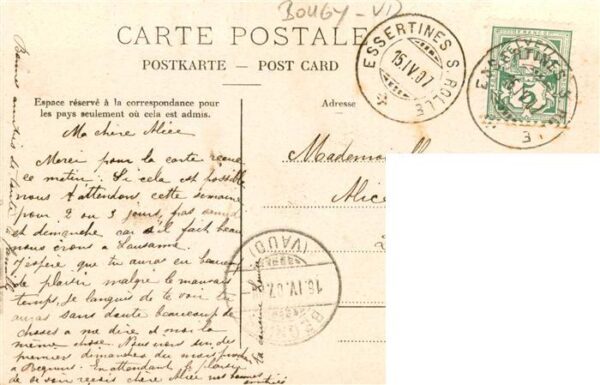 BOUGY - VD
CARTE POSTALE
POSTKARTE — POST CARD
Espace réservé à la correspondance pour
les pays seulement où cela est admis.
Adresse
ESSERTINES S. ROLLE
15.IV.07
ESSERTINES S.
5
Ma chère Alice
Merci pour la carte reçue
ce matin. Si cela est possible
nous t'attendons cette semaine
pour 2 ou 3 jours, pas samedi
et dimanche car s'il fait beau
nous irons à Lausanne.
J'espère que tu auras eu beaucoup
de plaisir malgré le mauvais
temps, je languis de te voir tu
auras sans doute beaucoup de
choses a me dire et moi la
même chose. Nous irons un des
premiers dimanches du mois prochain
a Begnins. En attendant le plaisir
de te voir reçois chère Alice nos bonnes
amitiés
ta cousine
Mademoi
Alice
(VAUD)
16.IV.07